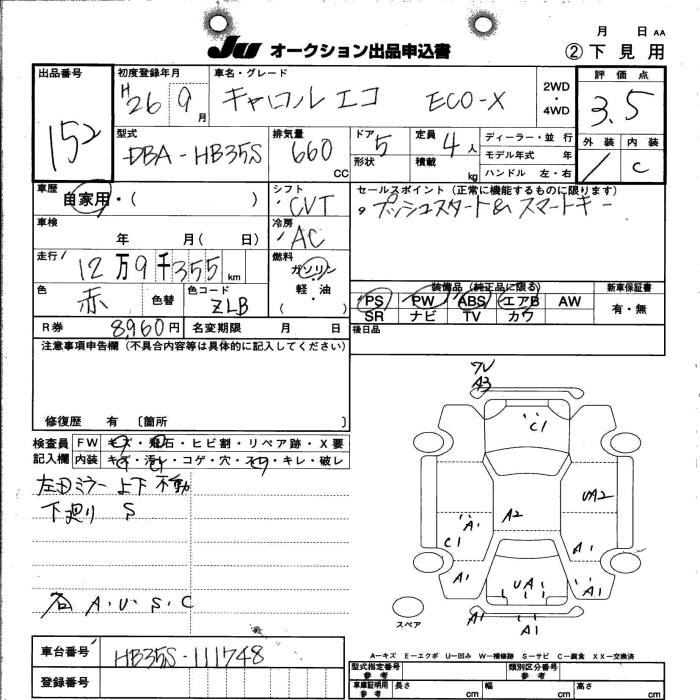 月 日 AA
JU オークション出品申込書 ② 下見用
出品番号 初度登録年月 車名・グレード 2WD・4WD 評価点
152 H26 9月 キャロル エコ ECO-X 3.5
外装 内装
/ C
型式 排気量 ドア 定員 ディーラー・並行
DBA-HB35S 660CC 5 4人 モデル年式 年
形状 積載 kg ハンドル 左・右
車歴 シフト セールスポイント (正常に機能するものに限ります)
自家用・( ) CVT プッシュスタート& スマートキー
車検 冷房
年 月( 日) AC
走行 燃料
12万9千355km ガソリン
軽・油
( )
色 色替 色コード
赤 ZLB
装備品 (純正品に限る) 新車保証書
PS PW ABS エアB AW 有・無
SR ナビ TV カワ
R券 8,960円 名変期限 月 日 後日品
注意事項申告欄 (不具合内容等は具体的に記入してください)
修復歴 有 〔箇所 〕
検査員記入欄 FW キズ・飛石・ヒビ割・リペア跡・X要
内装 キズ・汚レ・コゲ・穴・スレ・キレ・破レ
左ミラー 上下 不動
下廻り S
各 A.U.S.C
A3
C1
UA2
A2
A1
C1
A1
A1
UA1
A1
A1
A1
スペア
A-キズ E-エクボ U-凹み W-補修跡 S-サビ C-腐食 XX-交換済
車台番号 HB35S-111748
登録番号
型式指定番号 参考 類別区分番号 参考
車庫証明用 参考 長さ cm 幅 cm 高さ cm